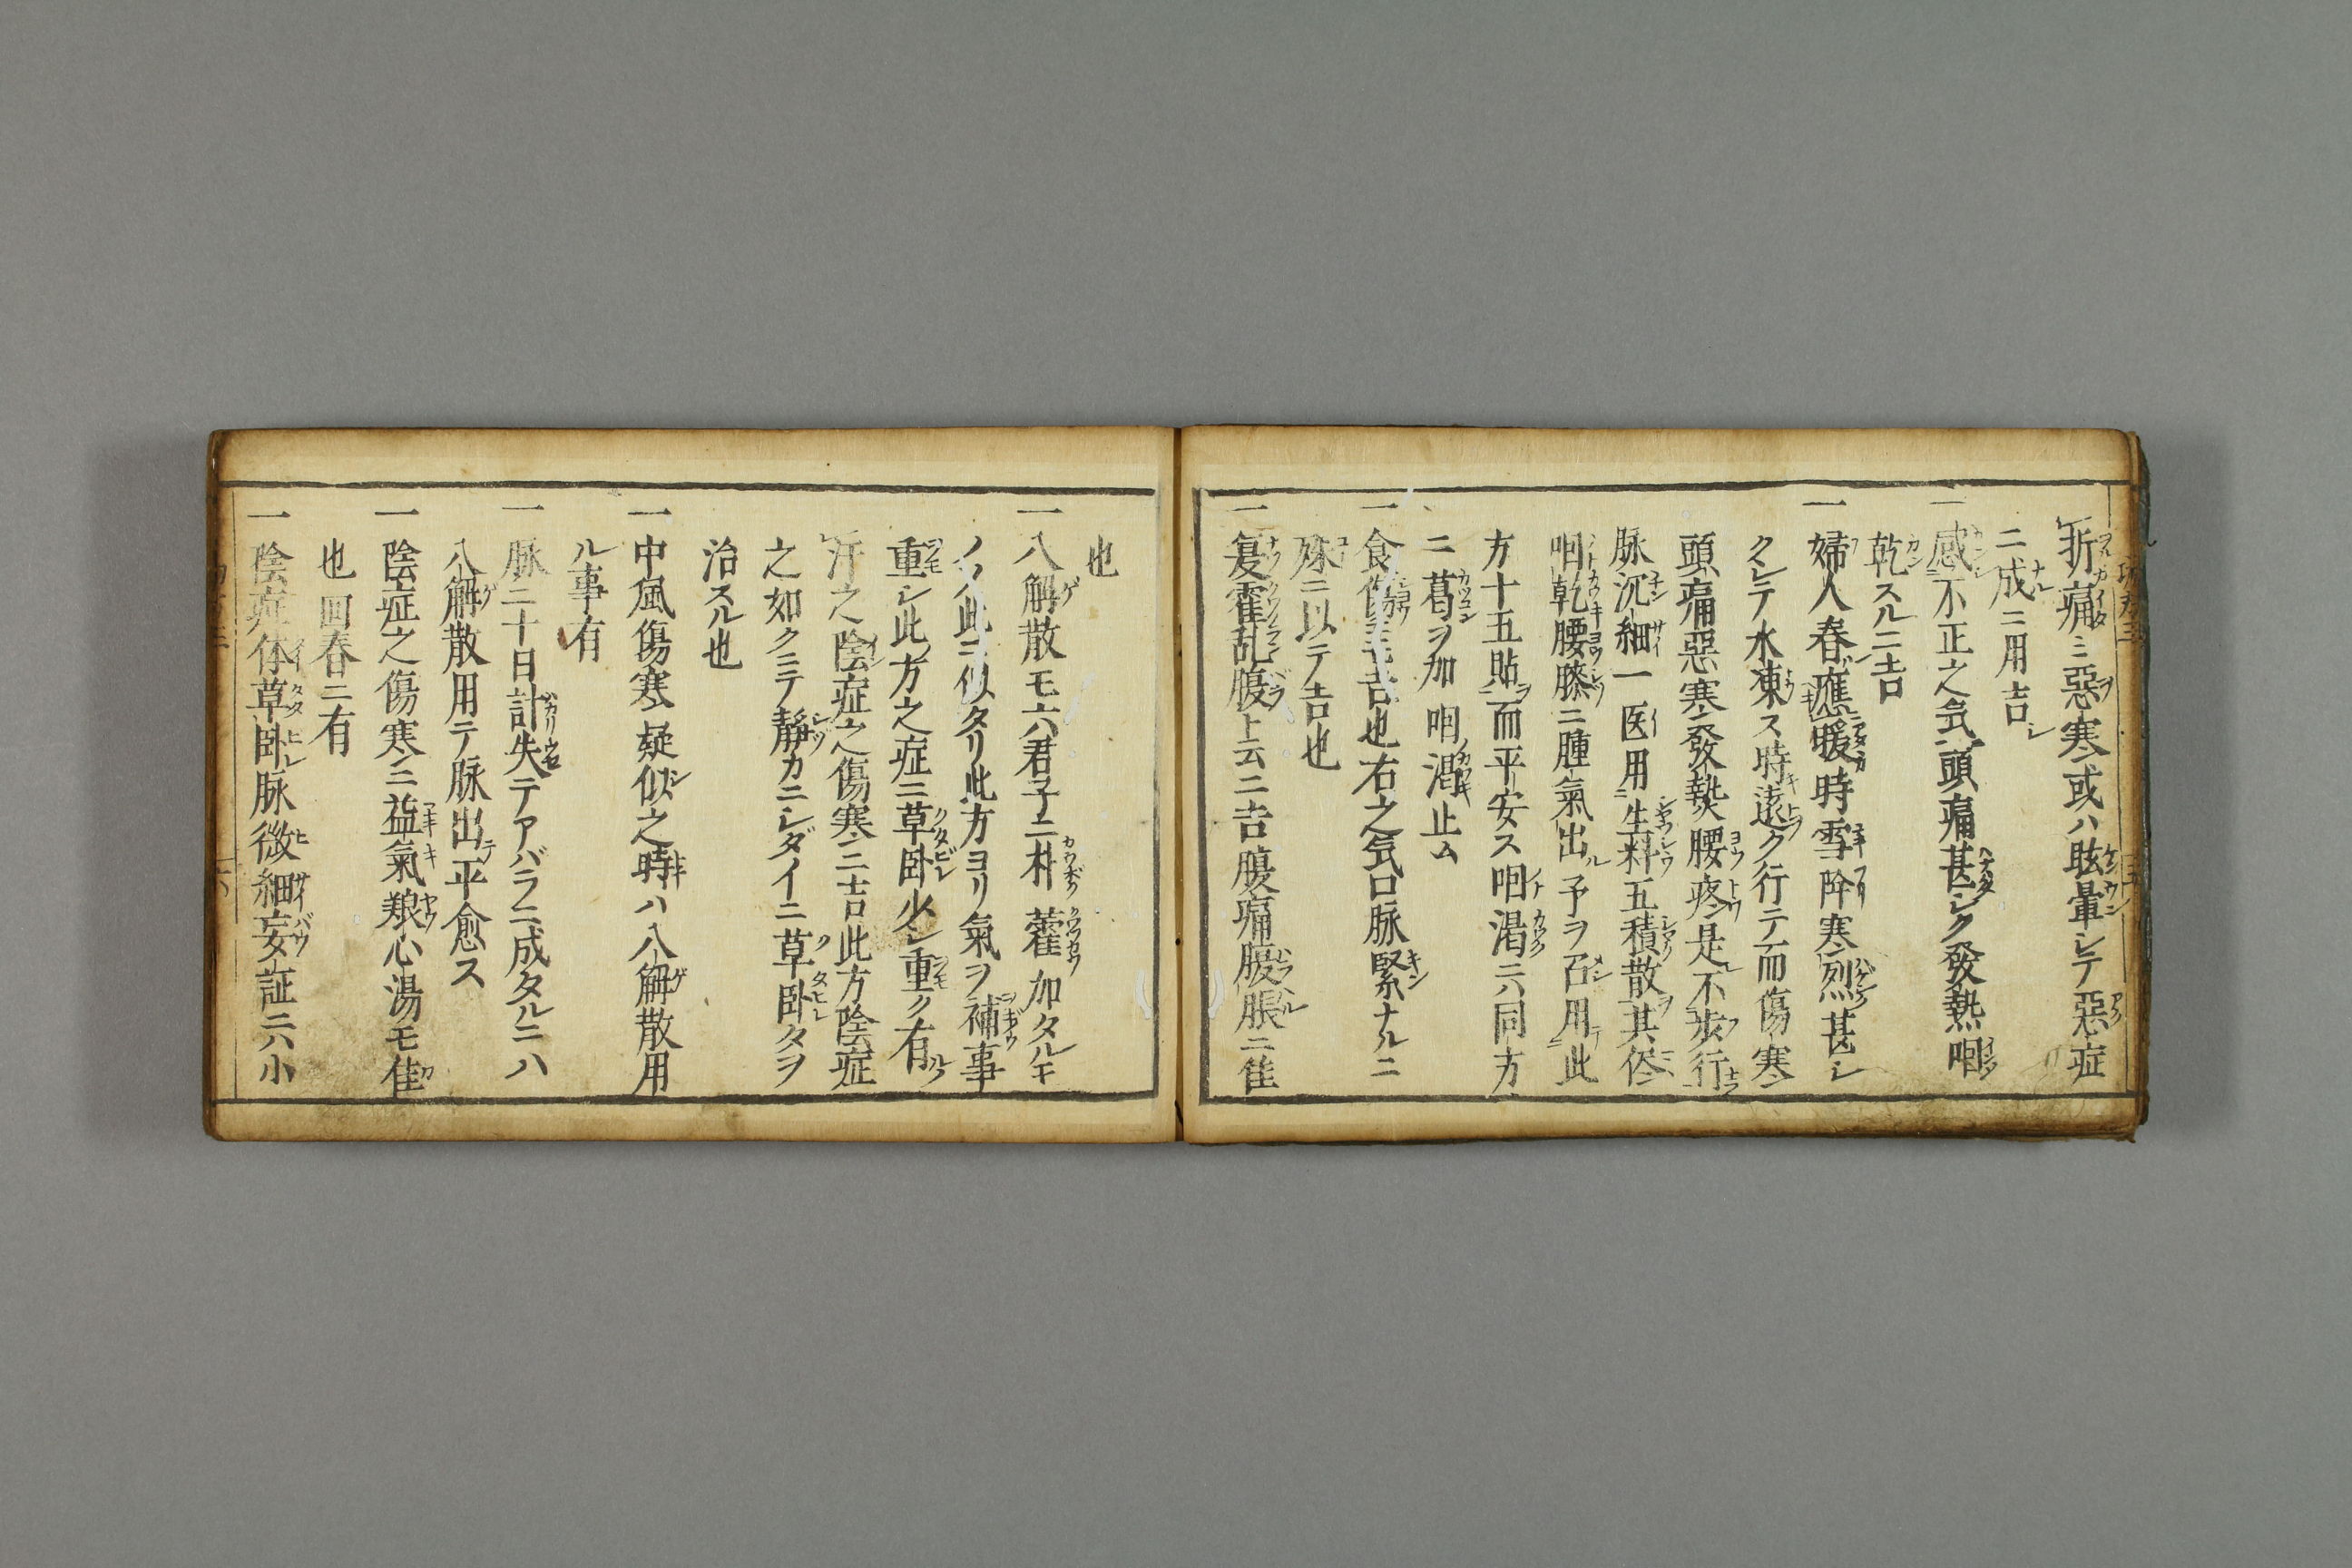 折痛ミ惡寒或ハ眩暈シテ惡症
ニ成ニ用吉
一感不正之気頭痛甚シク發熱咽
乾スルニ吉
一婦人春應暖時雪降寒烈甚シ
クシテ水凍ス時遠ク行テ而傷寒
頭痛惡寒發熱腰疼是不歩行
脉沉細一医用生料五積散其後
咽乾腰膝ニ腫氣出予ヲ召用此
方十五貼而平安ス咽渇ニハ同方
ニ葛ヲ加咽渇止ム
一食傷ニ吉也右之気口脉緊ナルニ
殊ニ以テ吉也
一夏霍乱腹上云ニ吉腹痛腹脹ニ佳
也
一八解散モ六君子ニ朴藿加タルキ
ノ此ニ似タリ此方ヨリ氣ヲ補事
重シ此方之症ニ草卧少シ重ク有
汗之陰症之傷寒ニ吉此方陰症
之如クニテ靜カニシダイニ草卧タヲ
治スル也
一中風傷寒疑似之時ハ八解散用
ル事有
一脉二十日計失テアバラニ成タルニハ
八解散用テ脉出平愈ス
一陰症之傷寒ニ益氣粮心湯モ佳
也回春ニ有
一陰症体草卧脉微細妄証ニハ小